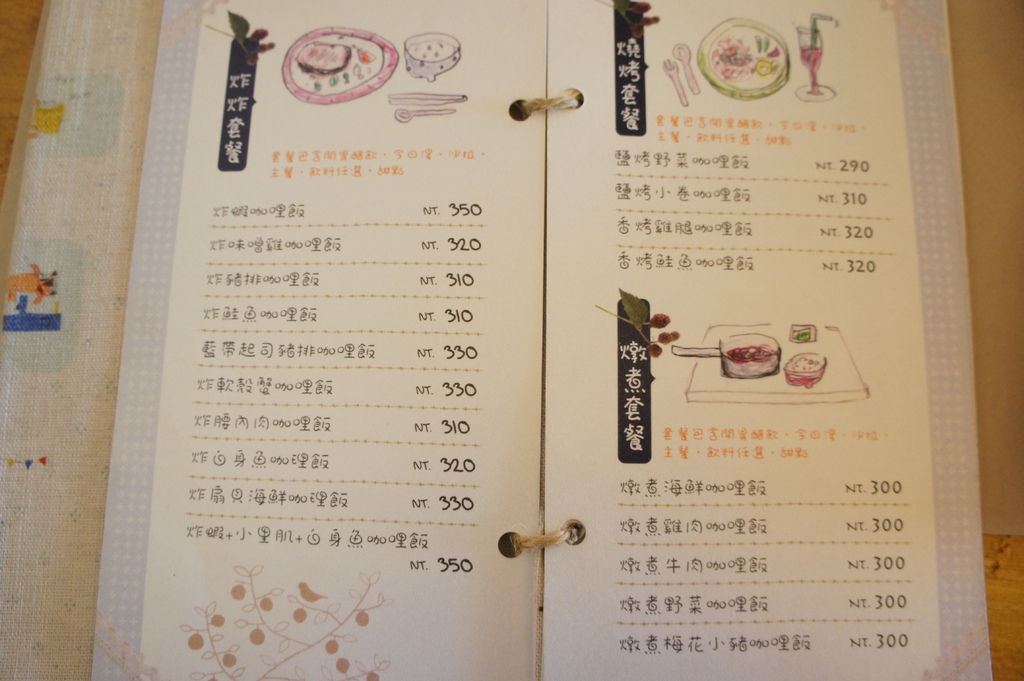 炸炸套餐
套餐包含開胃醋飲．今日湯．沙拉．
主餐．飲料任選．甜點
炸蝦咖哩飯 NT. 350
炸味噌雞咖哩飯 NT. 320
炸豬排咖哩飯 NT. 310
炸鮭魚咖哩飯 NT. 310
藍帶起司豬排咖哩飯 NT. 330
炸軟殼蟹咖哩飯 NT. 330
炸腰內肉咖哩飯 NT. 310
炸白身魚咖哩飯 NT. 320
炸扇貝海鮮咖哩飯 NT. 330
炸蝦+小里肌+白身魚咖哩飯
NT. 350
燒烤套餐
套餐包含開胃醋飲．今日湯．沙拉．
主餐．飲料任選．甜點
鹽烤野菜咖哩飯 NT. 290
鹽烤小卷咖哩飯 NT. 310
香烤雞腿咖哩飯 NT. 320
香烤鮭魚咖哩飯 NT. 320
燉煮套餐
套餐包含開胃醋飲．今日湯．沙拉．
主餐．飲料任選．甜點
燉煮海鮮咖哩飯 NT. 300
燉煮雞肉咖哩飯 NT. 300
燉煮牛肉咖哩飯 NT. 300
燉煮野菜咖哩飯 NT. 300
燉煮梅花小豬咖哩飯 NT. 300